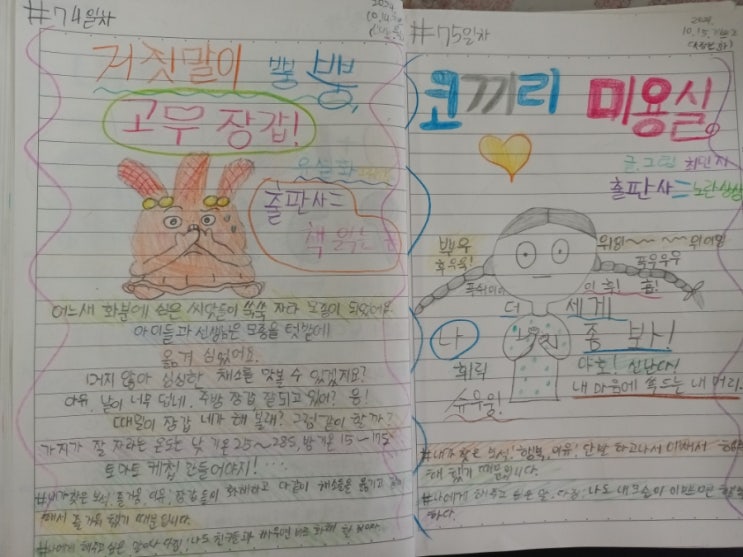 #74일차
거짓말이 뿡 뿡,
고무장갑!
유설화
출판사=
책읽는
어느새 화분에 심은 씨앗들이 쑥쑥 자라 모종이 되었어요.
아이들과 선생님은 모종을 텃밭에
옮겨 심었어요.
머지 않아 싱싱한 채소를 맛볼 수 있겠지요?
아유, 날이 너무 덥네. 주방 장갑 잘 되고 있어? 응!
때밀이 장갑 네가 해 볼래? 그럼 같이 할까?
가지가 잘 자라는 온도는 낮 기온 25~28도, 밤 기온 15~17도
토마토 케첩 만들어야지!...
#내가 찾은 보석: 즐거움 이유: 장갑들이 화해하고 다같이 채소들을 옮기고
해서 즐거워 했기 때문입니다.
#나에게 해주고 싶은 말이나 다짐: 나도 친구들과 싸우면 바로 화해 할 거야.
#75일차
2024.
10.15.
코끼리 미용실.
글.그림 최민지
출판사=노란상상
백옥
휘유욱!
위잉~~ 위이잉
푸우우우
의 휘! 흡!
더 세게
나 좀 봐!
휘릭
야호! 신난다!
내 마음에 쏙 드는 내 머리.
슈우웅!
#내가 찾은 보석: 행복, 이유: 단발 하고나서 이뻐서 행복
해 했기 때문입니다.
#나에게 해주고 싶은 말, 다짐: 나도 내 모습이 이쁘면 행복
하다.